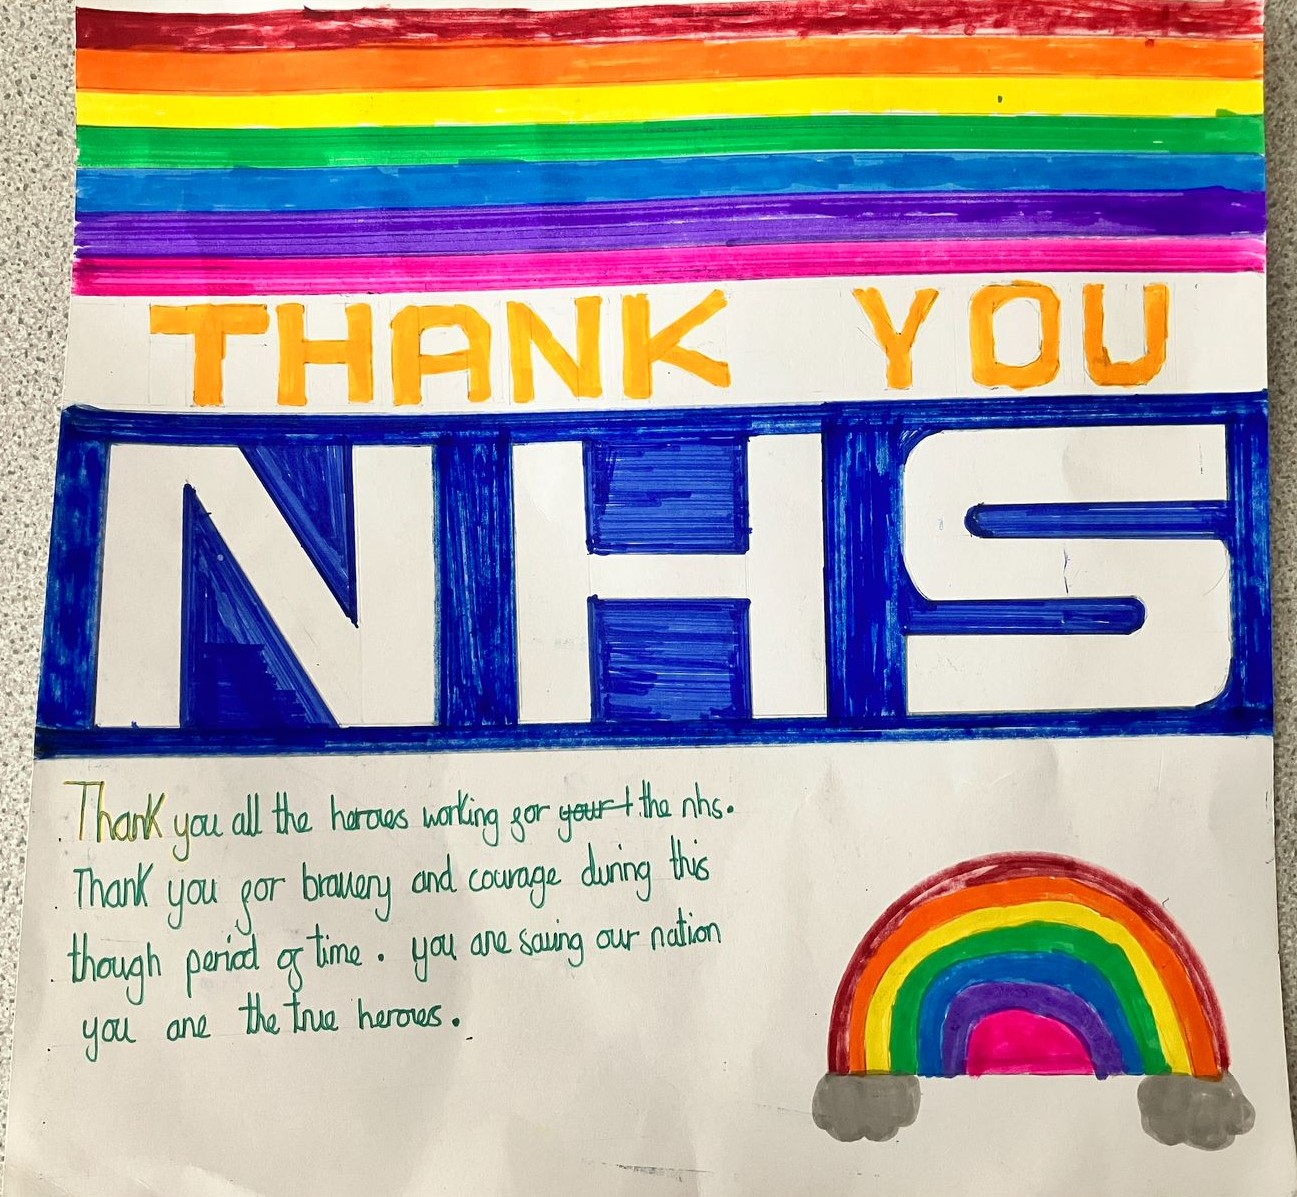 THANK YOU
NHS
Thank you all the heroes working for your t the nhs.
Thank you for bravery and courage during this
though period of time. you are saving our nation
you are the true heroes.